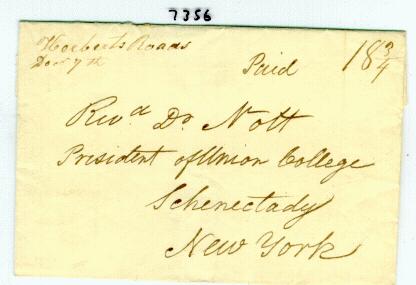 7356
Herberts Roads
Decr 7th
Paid
18 3/4
Revd Dr Nott
President of Union College
Schenectady
New York